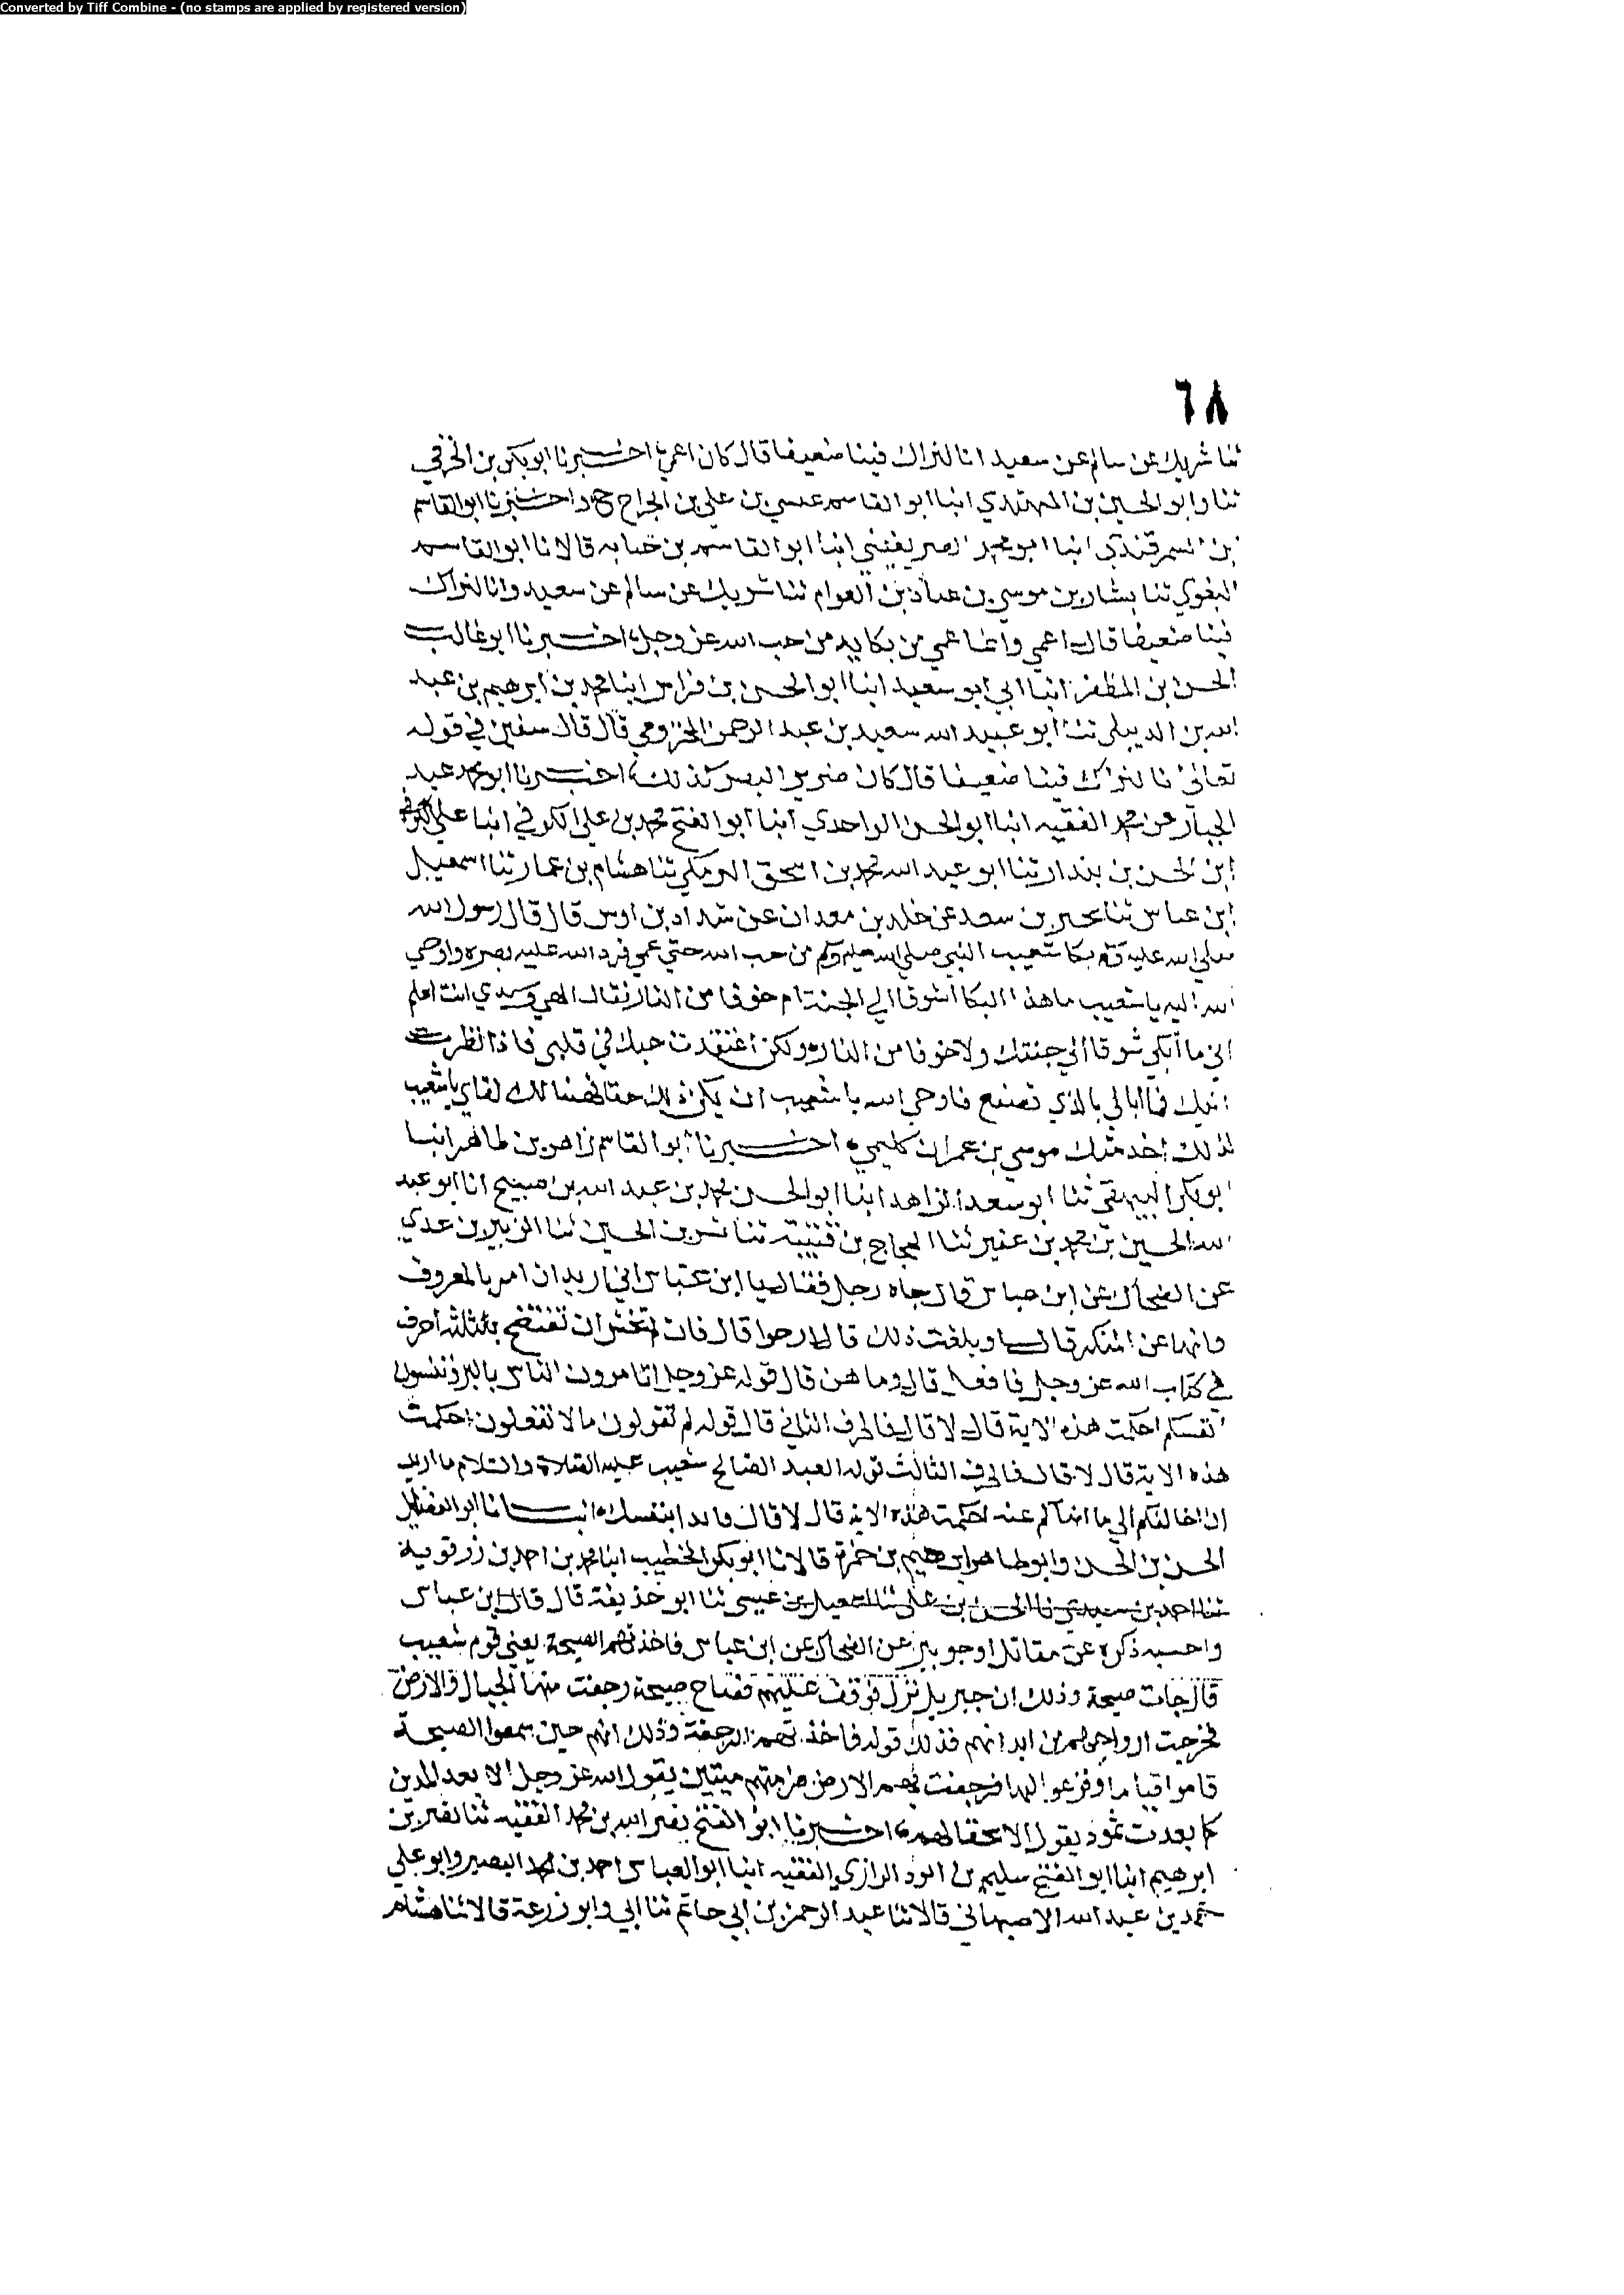 Converted by Tiff Combine - (no stamps are applied by registered version)
٦٨
ثنا شريك عن سالم عن سعيد انا لنراك فينا ضعيفا قال كان اعمى اخبرنا ابو بكر بن
ثنا وابو الحسين بن المهتدي انبا ابو القاسم عيسى بن علي بن الجراح ح واخبرنا ابو القاسم
بن السمرقندي انبا ابو محمد الصريفيني انبا ابو القاسم بن حبابه قالا نا ابو القاسم
البغوي ثنا بشار بن موسى بن عباد بن العوام ثنا شريك عن سالم عن سعيد وانا لنراك
فينا ضعيفا قال اعمى وانما عمي من بكايه من حب الله عز وجل اخبرنا ابو غالب
الحسن بن المظفر انبا ابي ابو سعيد انبا ابو الحسن بن فراس انبا محمد بن ابرهيم بن عبد
الله بن الديبلي ثنا ابو عبيد الله سعيد بن عبد الرحمن المخزومي قال قال سفين في قوله
تعالى انا لنراك فينا ضعيفا قال كان ضرير البصر كذلك اخبرنا ابو محمد عبد
الجبار بن محمد الفقيه انبا ابو الحسن الواحدي انبا ابو الفتح محمد بن علي الكوفي انبا علي
ابن الحسن بن بندار ثنا ابو عبد الله محمد بن اسحق الرملي ثنا هشام بن عمار ثنا اسمعيل
ابن عياش ثنا بحير بن سعد عن خلد بن معدان عن شداد بن اوس قال قال رسول الله
صلى الله عليه وسلم بكا شعيب النبي صلى الله عليه وسلم من حب الله حتى عمي فرد الله عليه بصره واوحى
الله اليه يا شعيب ما هذا البكا اشوقا الى الجنة ام خوفا من النار فقال الهي وسيدي انت اعلم
اني ما ابكي شوقا الى جنتك ولا خوفا من النار ولكن اعتقدت حبك في قلبي فاذا نظرت
اليك فما ابالي بالذي تصنع فاوحى الله يا شعيب ان يكن ذلك حقا فهنيا لك لقاي يا شعيب
لذلك اخدمتك موسى بن عمران كليمي اخبرنا ابو القاسم زاهر بن طاهر انبا
ابو بكر البيهقي ثنا ابو سعد الزاهد انبا ابو الحسن محمد بن عبد الله بن صبيح انا ابو عبد
الله الحسين بن محمد بن عفير ثنا الحجاج بن قتيبة ثنا بشر بن الحسين ثنا الزبير بن عدي
عن الضحاك عن ابن عباس قال جاه رجل فقال يا ابن عباس اني اريد ان امر بالمعروف
وانهى عن المنكر قال او بلغت ذلك قال ارجوا قال فان لم تخش ان تفتضح بثلثة احرف
في كتاب الله عز وجل فافعل قال وما هن قال قوله عز وجل اتامرون الناس بالبر وتنسون
انفسكم احكمت هذه الاية قال لا قال فالحرف الثاني قال قوله لم تقولون مالا تفعلون احكمت
هذه الاية قال لا قال فالحرف الثالث قوله العبد الصالح شعيب عليه الصلاة والسلام ما اريد
ان اخالفكم الى ما انهاكم عنه احكمت هذه الاية قال لا قال فابدا بنفسك انبانا ابو الفضايل
الحسن بن الحسن وابو طاهر ابرهيم بن حمزة قالا نا ابو بكر الخطيب انبا محمد بن احمد بن رزقويه
ثنا احمد بن سندي نا الحسن بن علي ثنا اسمعيل بن عيسى ثنا ابو حذيفة قال قال ابن عباس
واحسبه ذكره عن مقاتل او جويبر عن الضحاك عن ابن عباس فاخذتهم الصيحة يعني قوم شعيب
قال جات صيحة وذلك ان جبريل نزل فوقف عليهم فصاح صيحة رجفت منها الجبال والارض
فخرجت ارواحهم من ابدانهم فذلك قوله فاخذتهم الرجفة وذلك انهم حين سمعوا الصيحة
قاموا قياما وفزعوا لها فرجفت بهم الارض فرمتهم ميتين يقول الله عز وجل الا بعد المدين
كما بعدت ثمود يقول الا سحقا لهم اخبرنا ابو الفتح نصر الله بن محمد الفقيه ثنا نصر بن
ابرهيم انبا ابو الفتح سليم بن ايوب الرازي الفقيه انبا ابو العباس احمد بن محمد البصير وابو علي
حمد بن عبد الله الاصبهاني قالا ثنا عبد الرحمن بن ابي حاتم ثنا ابي وابو زرعة قالا ثنا هشام